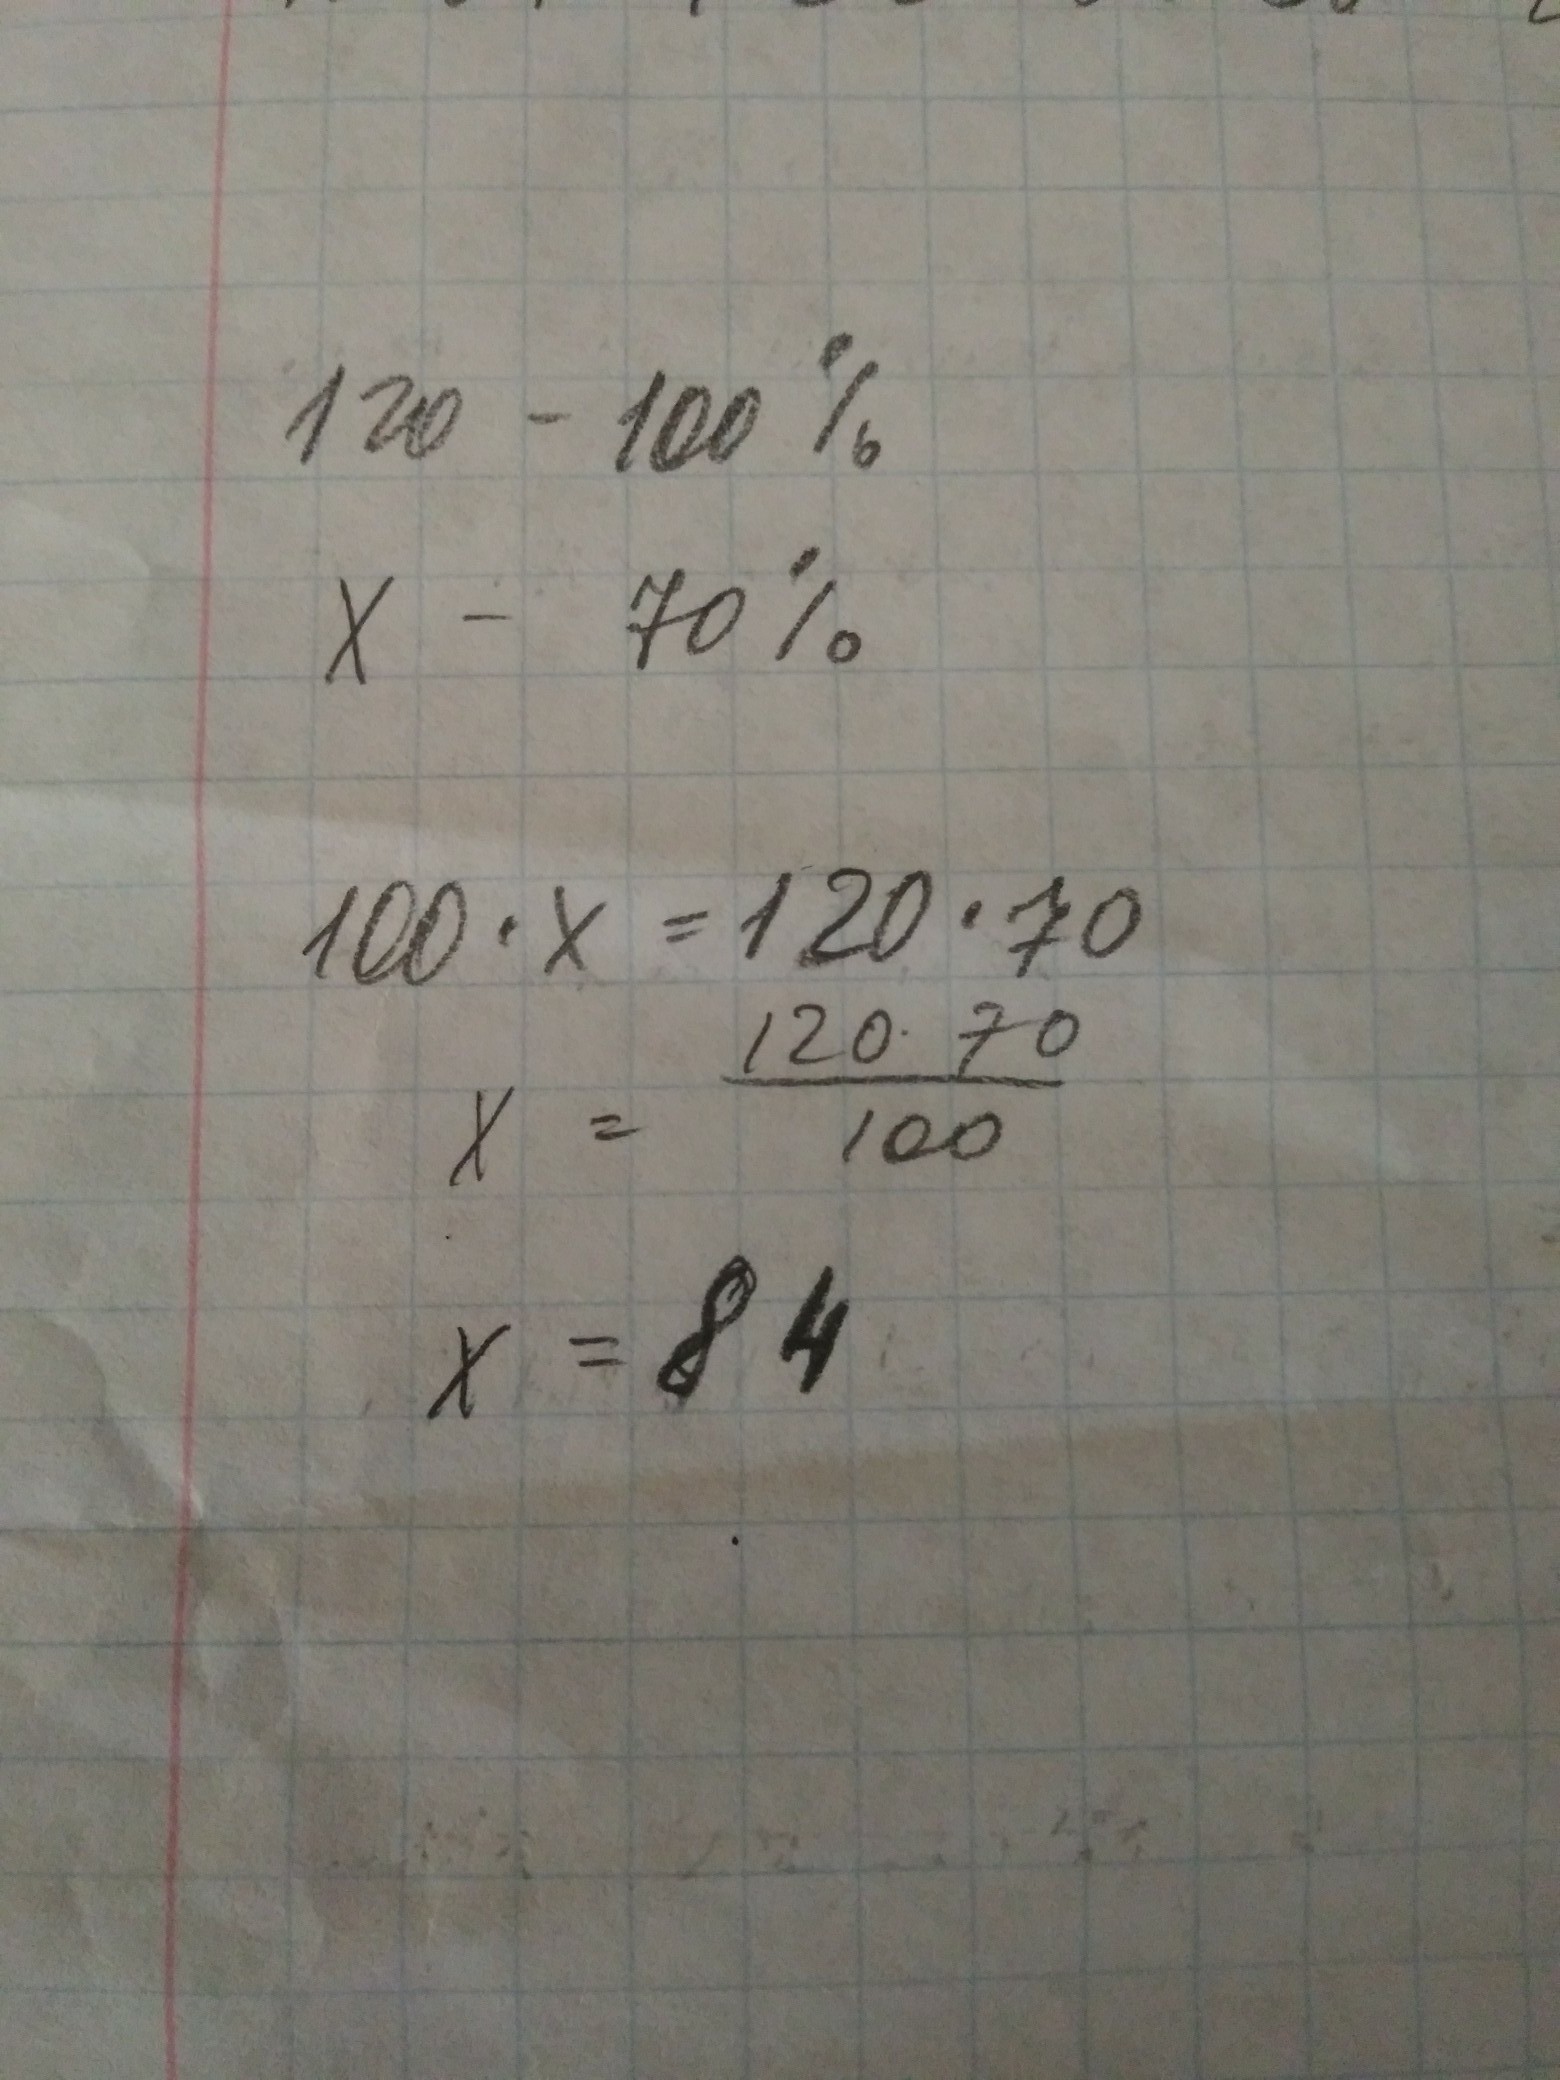 120 - 100%
x - 70%
100 · x = 120 · 70
x = 120 · 70 / 100
x = 84